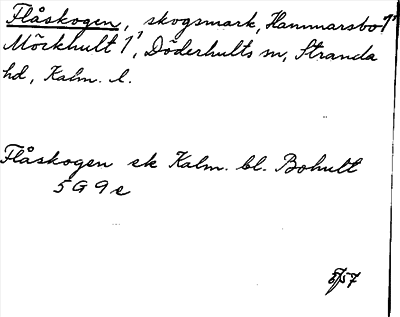 Flåskogen, skogsmark, Hammarsbo 1¹
Möckhult 1¹, Döderhults sn, Stranda
hd, Kalm. l.
Flåskogen ek Kalm. bl. Bohult
5 G 9 e
57